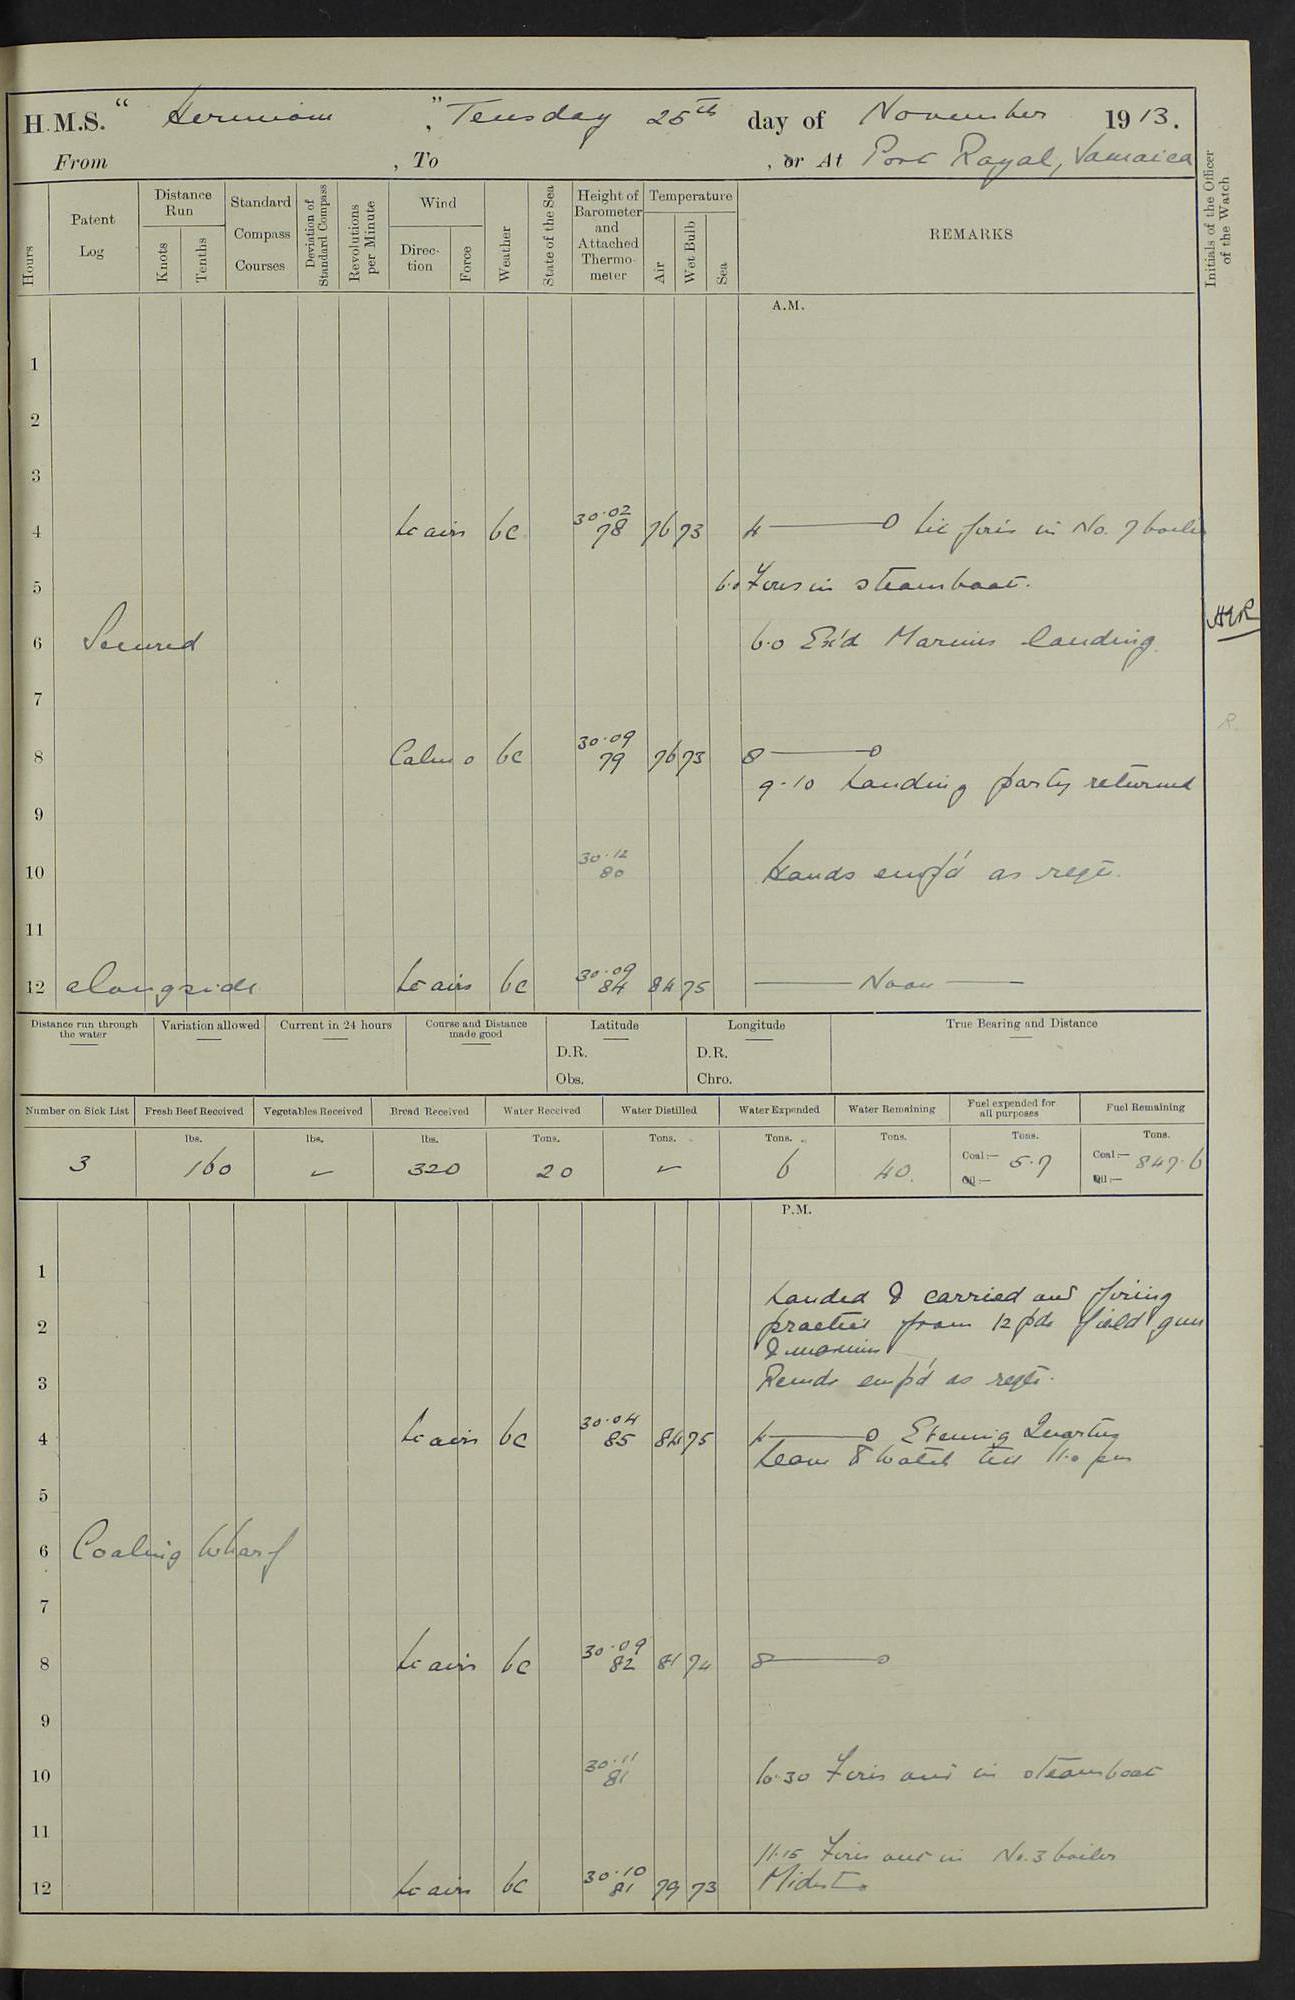 H.M.S. "Hermione", Tuesday 25th day of November 1913.
From , To , or At Port Royal, Jamaica
Hours
Patent Log
Distance Run
Knots
Tenths
Standard Compass Courses
Deviation of Standard Compass
Revolutions per Minute
Wind
Direction
Force
Weather
State of the Sea
Height of Barometer and Attached Thermometer
Temperature
Air
Wet Bulb
Sea
REMARKS
Initials of the Officer of the Watch
A.M.
1
2
3
4 Lt airs bc 30.02 78 76 73 4 ——— 0 Lit fires in No. 7 boiler
5 Fires in steamboat.
6 Secured 6.0 Ex'd Marines landing.
7
8 Calm 0 bc 30.09 79 76 73 8 ——— 0
9.10 Landing party returned
9
10 30.12 80 Hands emp'd as reqte.
11
12 alongside Lt airs bc 30.09 84 84 75 — Noon —
Distance run through the water
Variation allowed
Current in 24 hours
Course and Distance made good
Latitude
D.R.
Obs.
Longitude
D.R.
Chro.
True Bearing and Distance
Number on Sick List
Fresh Beef Received
Vegetables Received
Bread Received
Water Received
Water Distilled
Water Expended
Water Remaining
Fuel expended for all purposes
Fuel Remaining
lbs. lbs. lbs. Tons. Tons. Tons. Tons. Tons. Tons.
3 160 ✓ 320 20 ✓ 6 40. Coal:— 5.7 Coal:— 847.6
Oil:— Oil:—
P.M.
1
Landed & carried out firing
2 practice from 12 pdr field gun
3 Remdr emp'd as reqte.
4 Lt airs bc 30.04 85 84 75 4 ——— 0 Evening Quarters
Leave watch till 11.0 pm
5
6 Coaling Wharf
7
8 Lt airs bc 30.09 82 81 74 8 ——— 0
9
10 30.11 81 10.30 Fires out in steamboat
11
11.15 Fires out in No. 3 boiler
12 Lt airs bc 30.10 81 79 73 Midnt